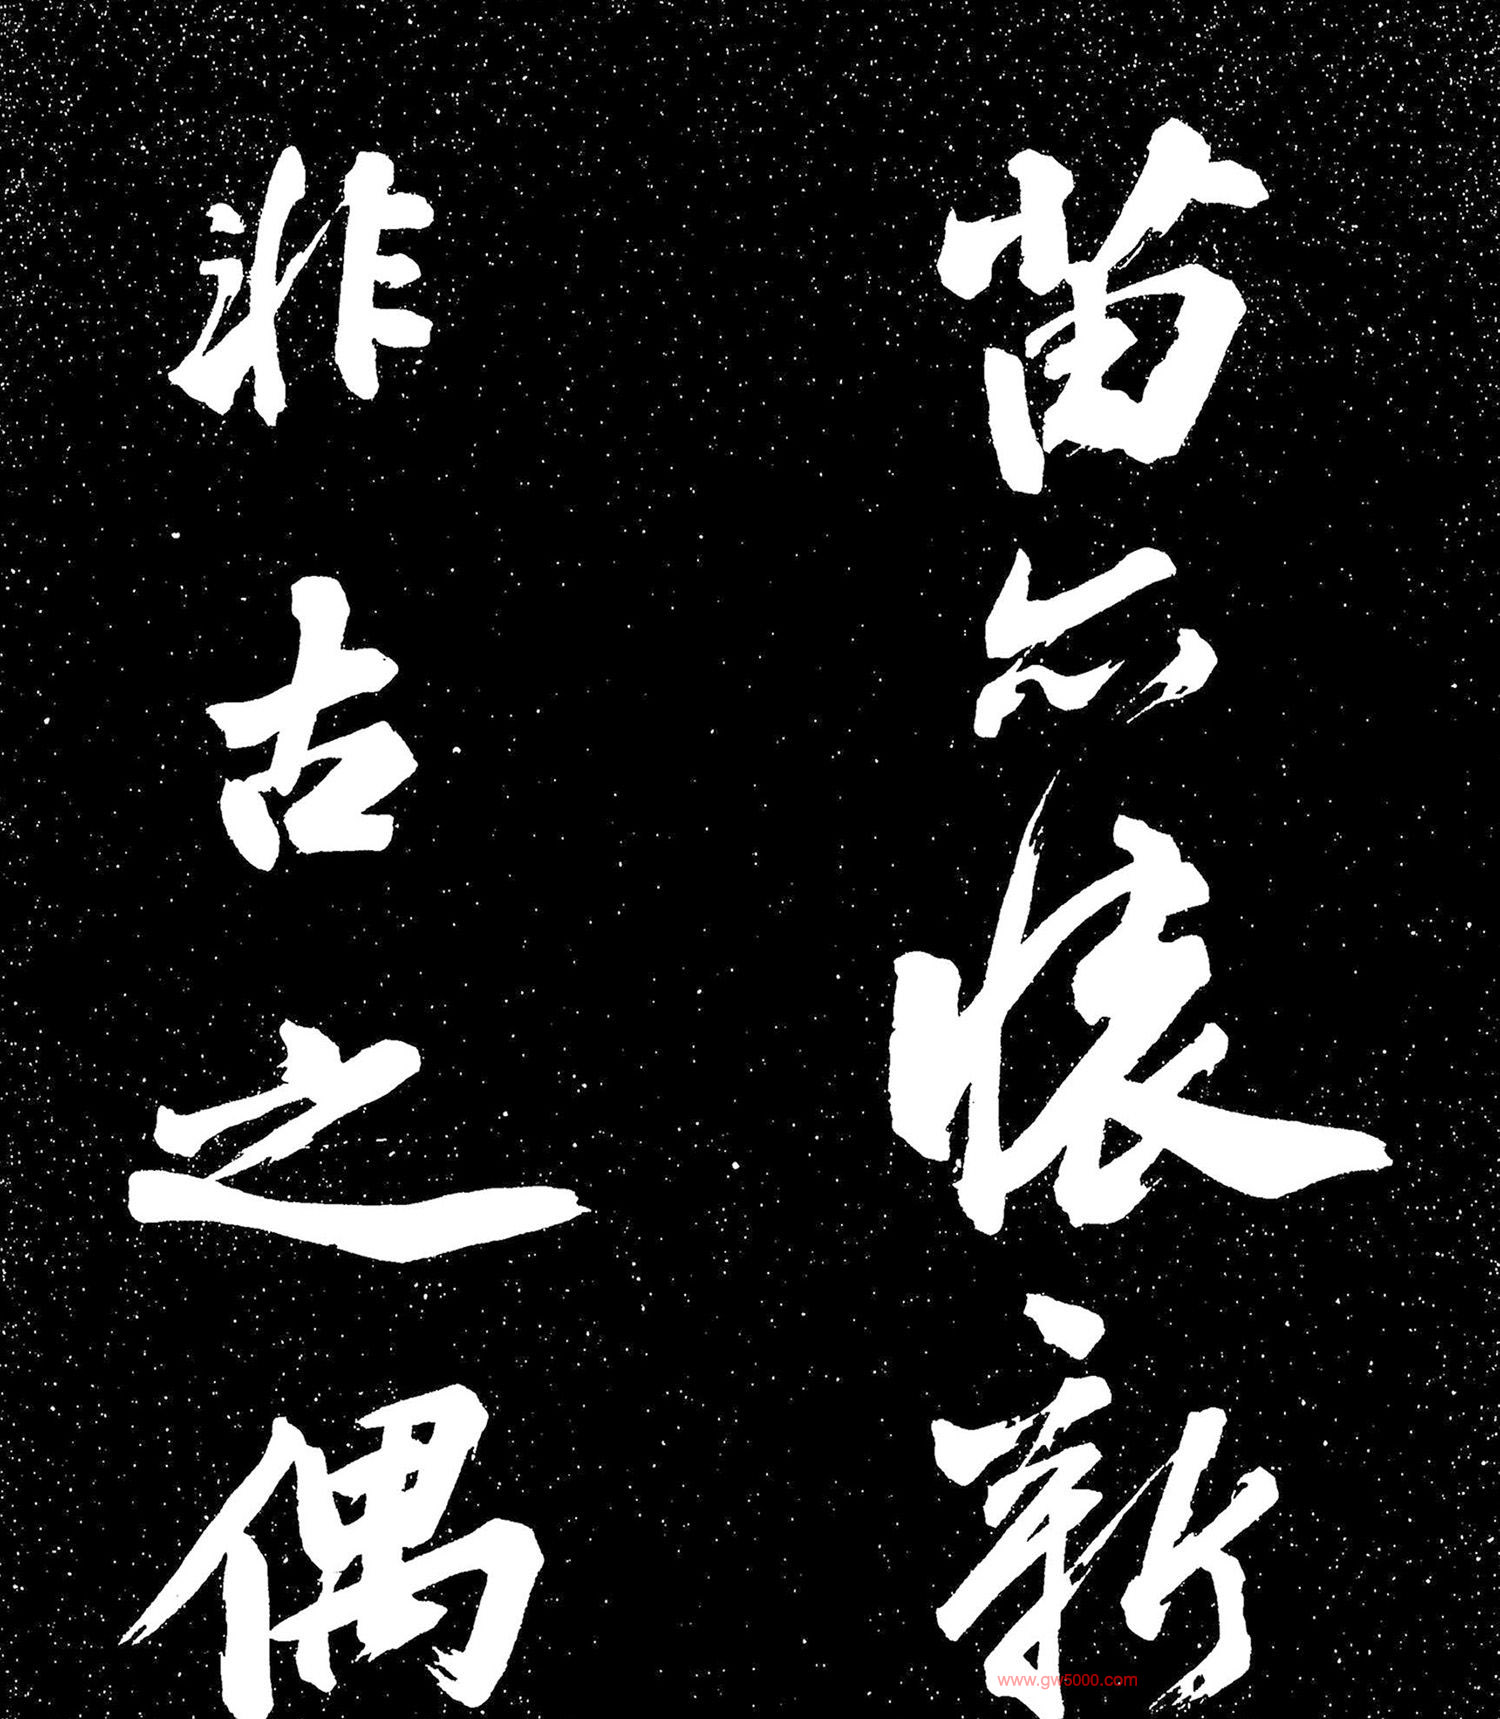 苗亦懷新
非古之偶
www.gw5000.com